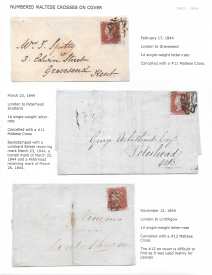 NUMBERED MALTESE CROSSES ON COVER
1843 - 1844
February 17, 1844
London to Gravesend
1d single weight-letter-rate
Cancelled with a #11 Maltese Cross
Gravesend
Kent
March 23, 1844
London to Peterhead
Scotland
1d single weight-letter-
rate
Cancelled with a #11
Maltese Cross.
Backstamped with a
Lombard Street receiving
mark March 23, 1844, a
transit mark of March 23,
1844 and a Peterhead
receiving mark of March
26, 1844.
Peterhead
November 12, 1844
London to Linlithgow
1d single weight-letter-rate
Cancelled with a #12 Maltese
Cross.
The #12 on cover is difficult to
find as it was used mainly for
parcels